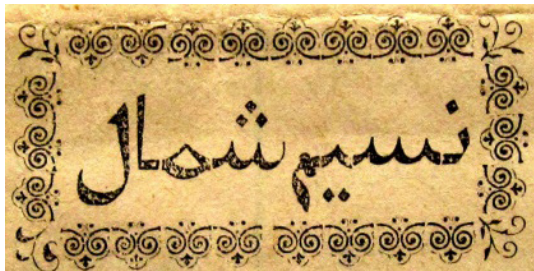 نسیم شمال